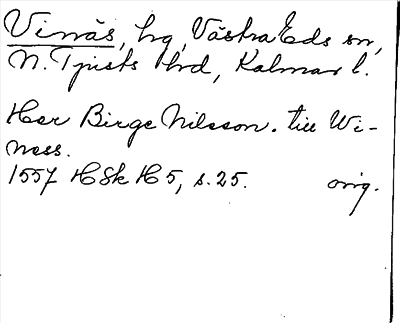 Vinäs, hg, Västra Eds sn,
N. Tjusts hd, Kalmar l.
Her Birge Nilsson. till Wi-
ness.
1557 HSk H 5, s. 25. orig.